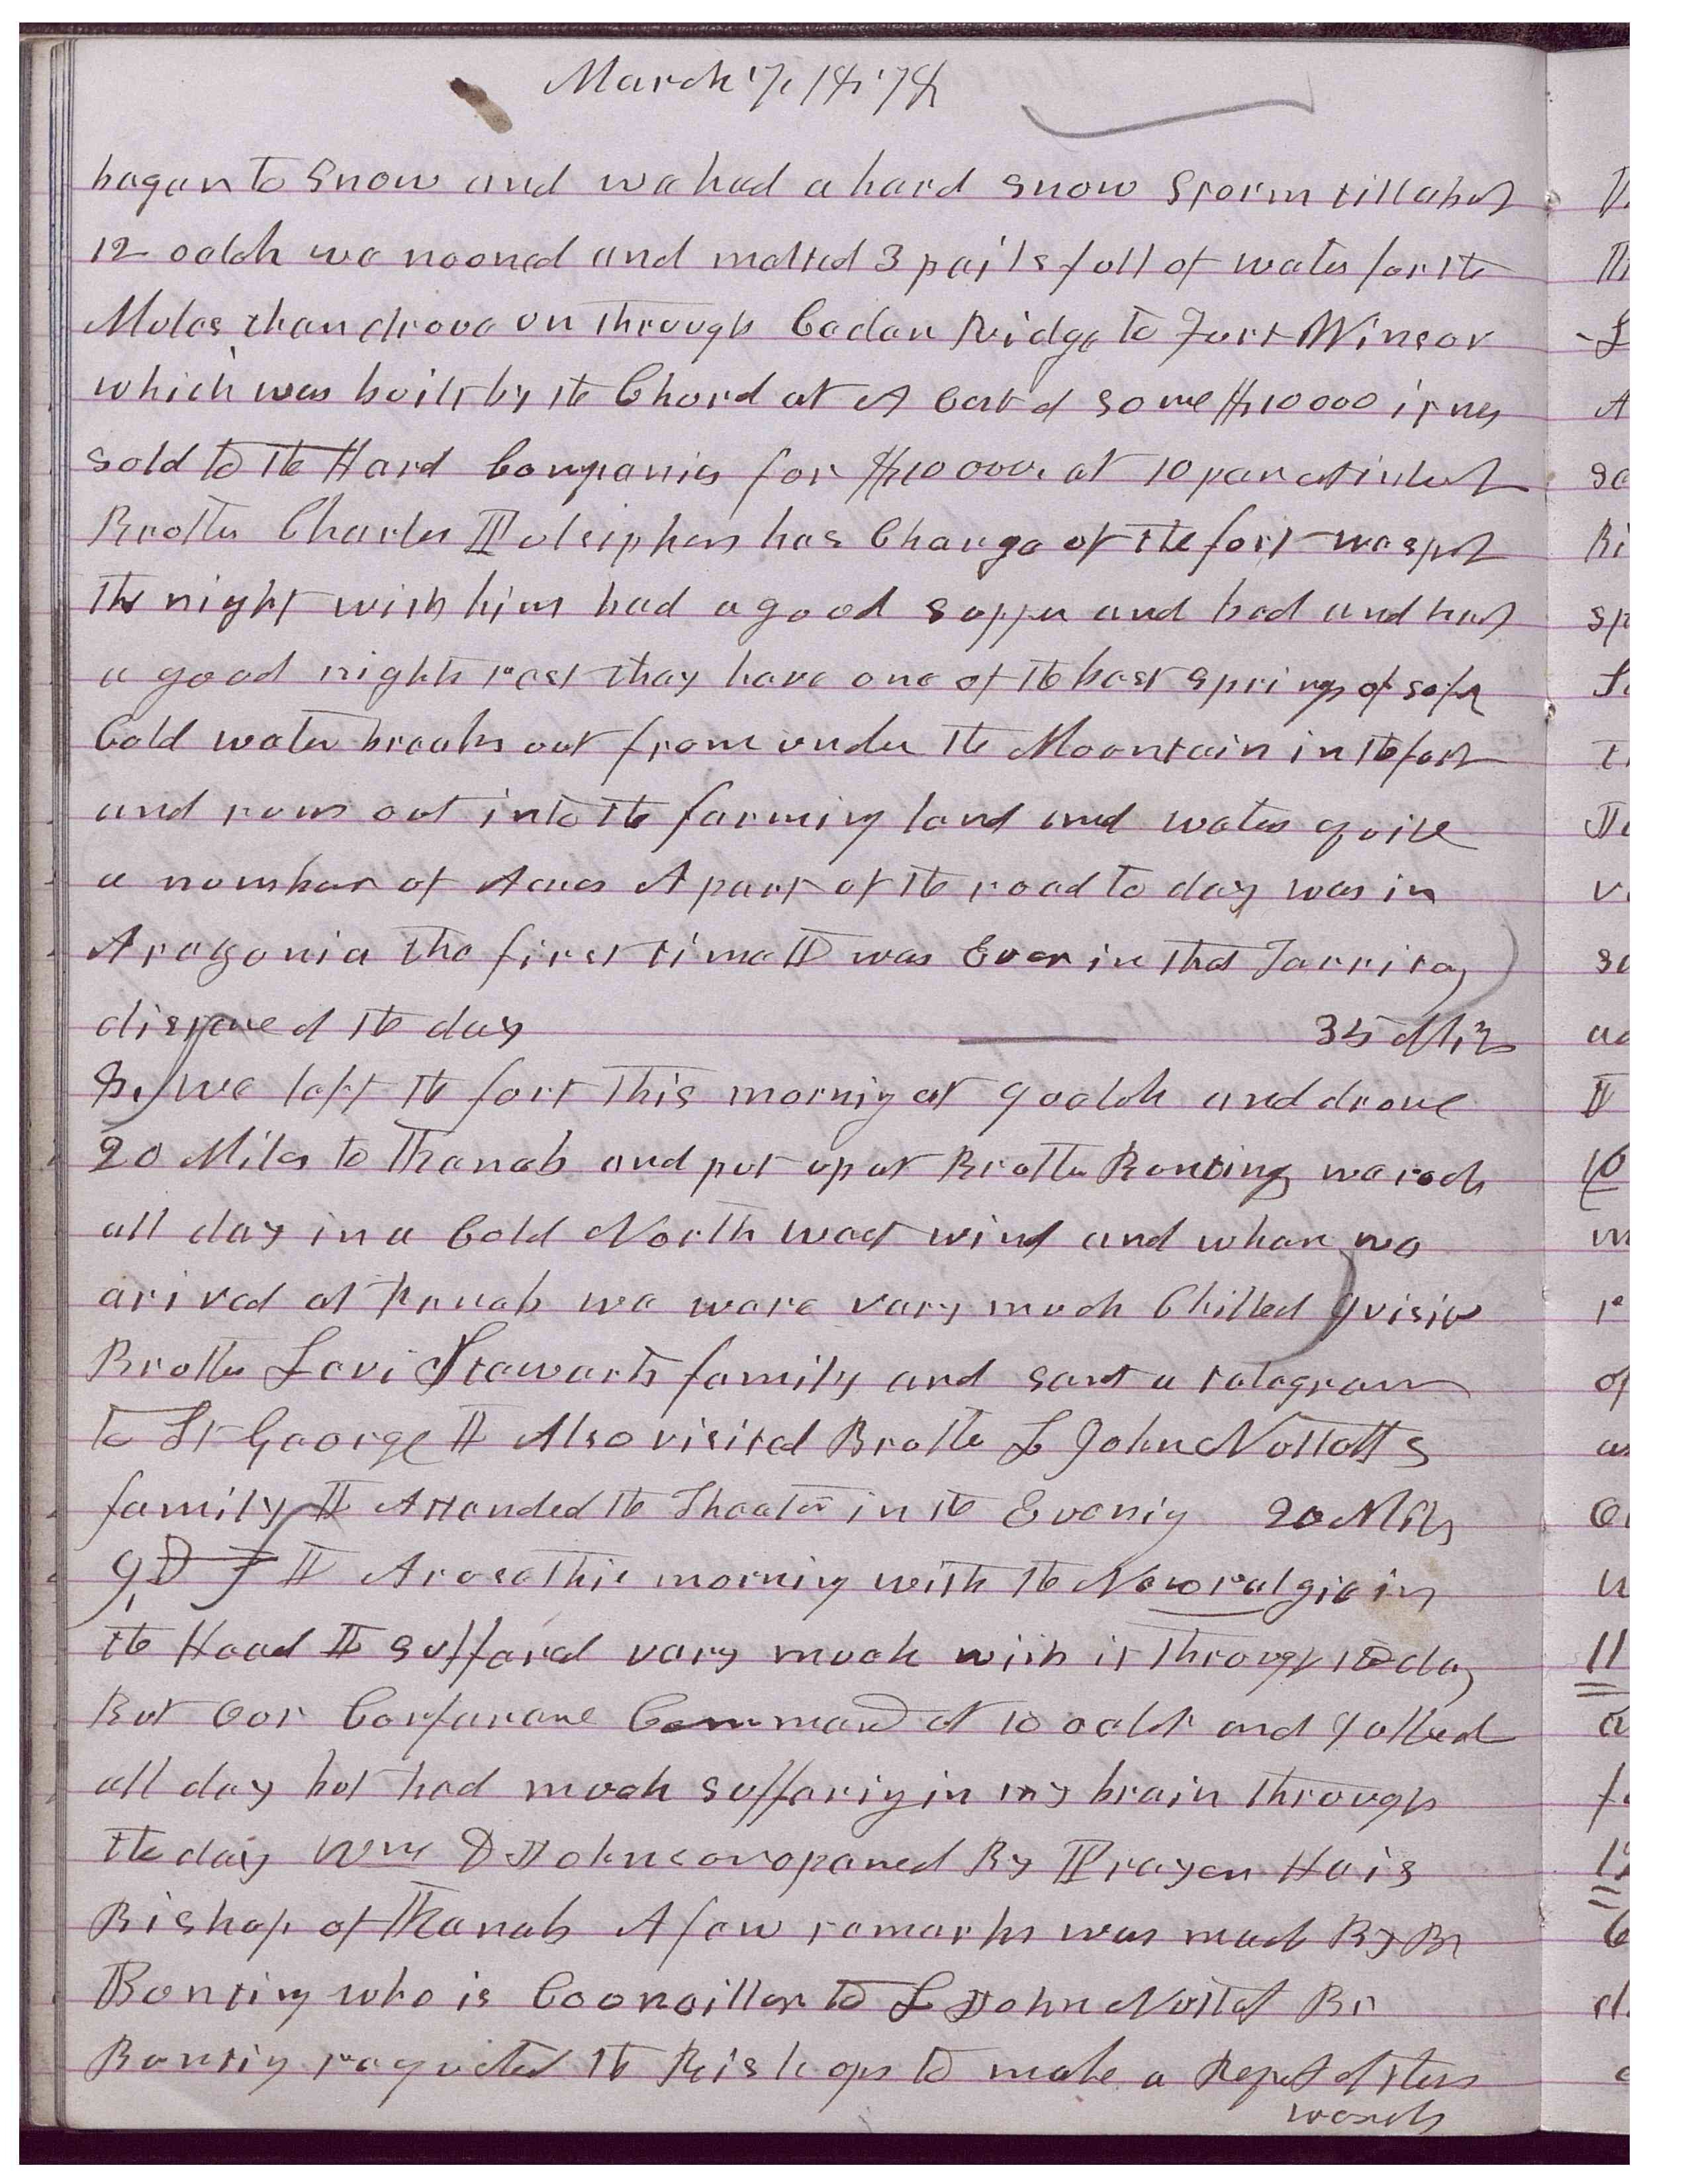 March 7, 1878
began to snow and we had a hard snow storm till about
12 oclok we nooned and melted 3 pails full of water for the
Mules then drove on through Cedar Ridge to Fort Winsor
which was built by the Church at A Cost of some $10000 it was
sold to the Hard Companies for $10000, at 10 per ct interest
Brother Charles Pulsipher has Charge of the fort we spent
the night with him had a good supper and bed and had
a good nights rest they have one of the best springs of soft
Cold water breaks out from under the Mountain in the fort
and runs out into the farming land and waters quite
a number of Acres A part of the road to day was in
Arazonia the first time I was Ever in that Territory
distance of the day 35 Miles
8, we left the fort this morning at 9 oclok and drove
20 Miles to Kanab and put up at Brother Bunting we rode
all day in a Cold North west wind and when we
arived at Kanab we ware vary much Chilled I visit
Brother Levi Stewarts family and sent a telegram
to St George I Also visited Brother L John Nuttalls
family I Attended the Theater in the Evening 20 Miles
9 I Arose this morning with the Newralgia in
the Head I sufferd vary much with it through the day
But Our Conferance Commencd at 10 oclk and I attend
all day but had much suffering in my brain through
the day Wm D Johnson opened By Prayer He is
Bishop of Kanab A few remarks was made By Br
Bunting who is Councillor to L John Nuttall Br
Bunting requested the Bishops to make a Report of their
wards